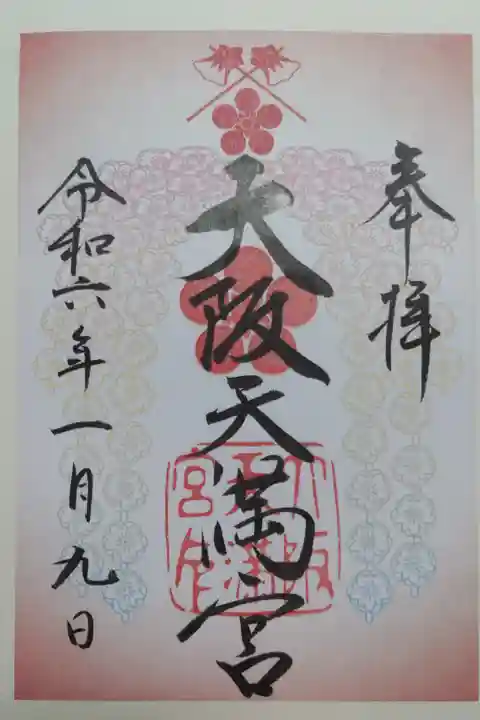 奉拝
大阪天満宮
令和六年一月九日